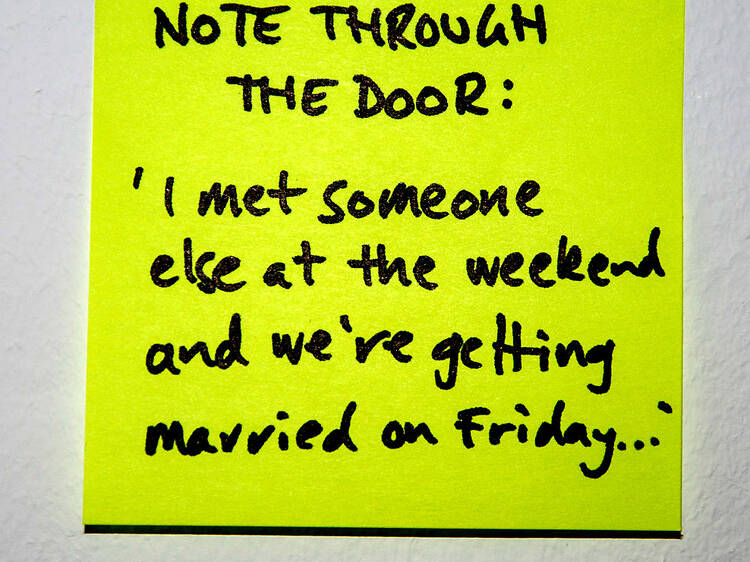 NOTE THROUGH
THE DOOR:
'I met someone
else at the weekend
and we're getting
married on Friday...'